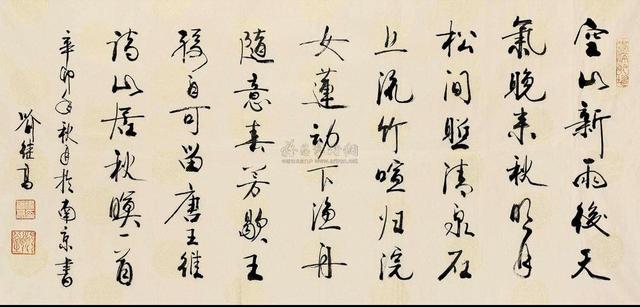 空山新雨後天
氣晚来秋明月
松间照清泉石
上流竹喧归浣
女蓮动下渔舟
隨意春芳歇王
孫自可留唐王維
詩山居秋暝首
辛卯年秋月於南京書
喻继高